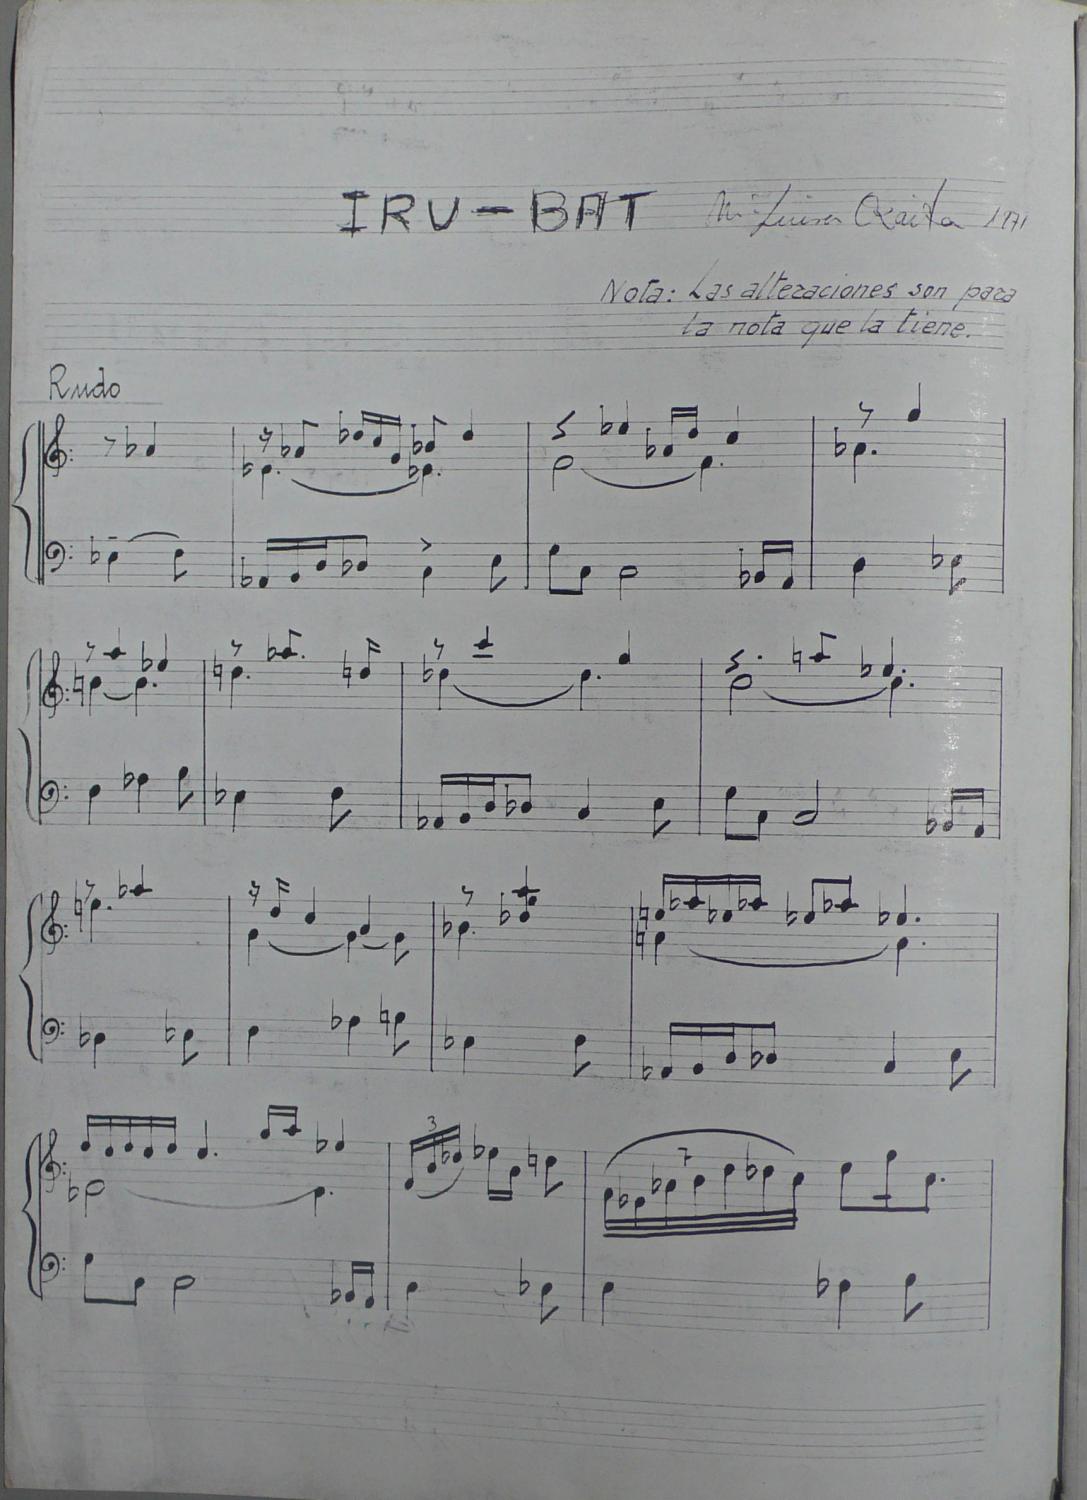 IRU-BAT Mª Luisa Ozaita 1971
Nota: Las alteraciones son para
la nota que la tiene.
Rudo
3
7